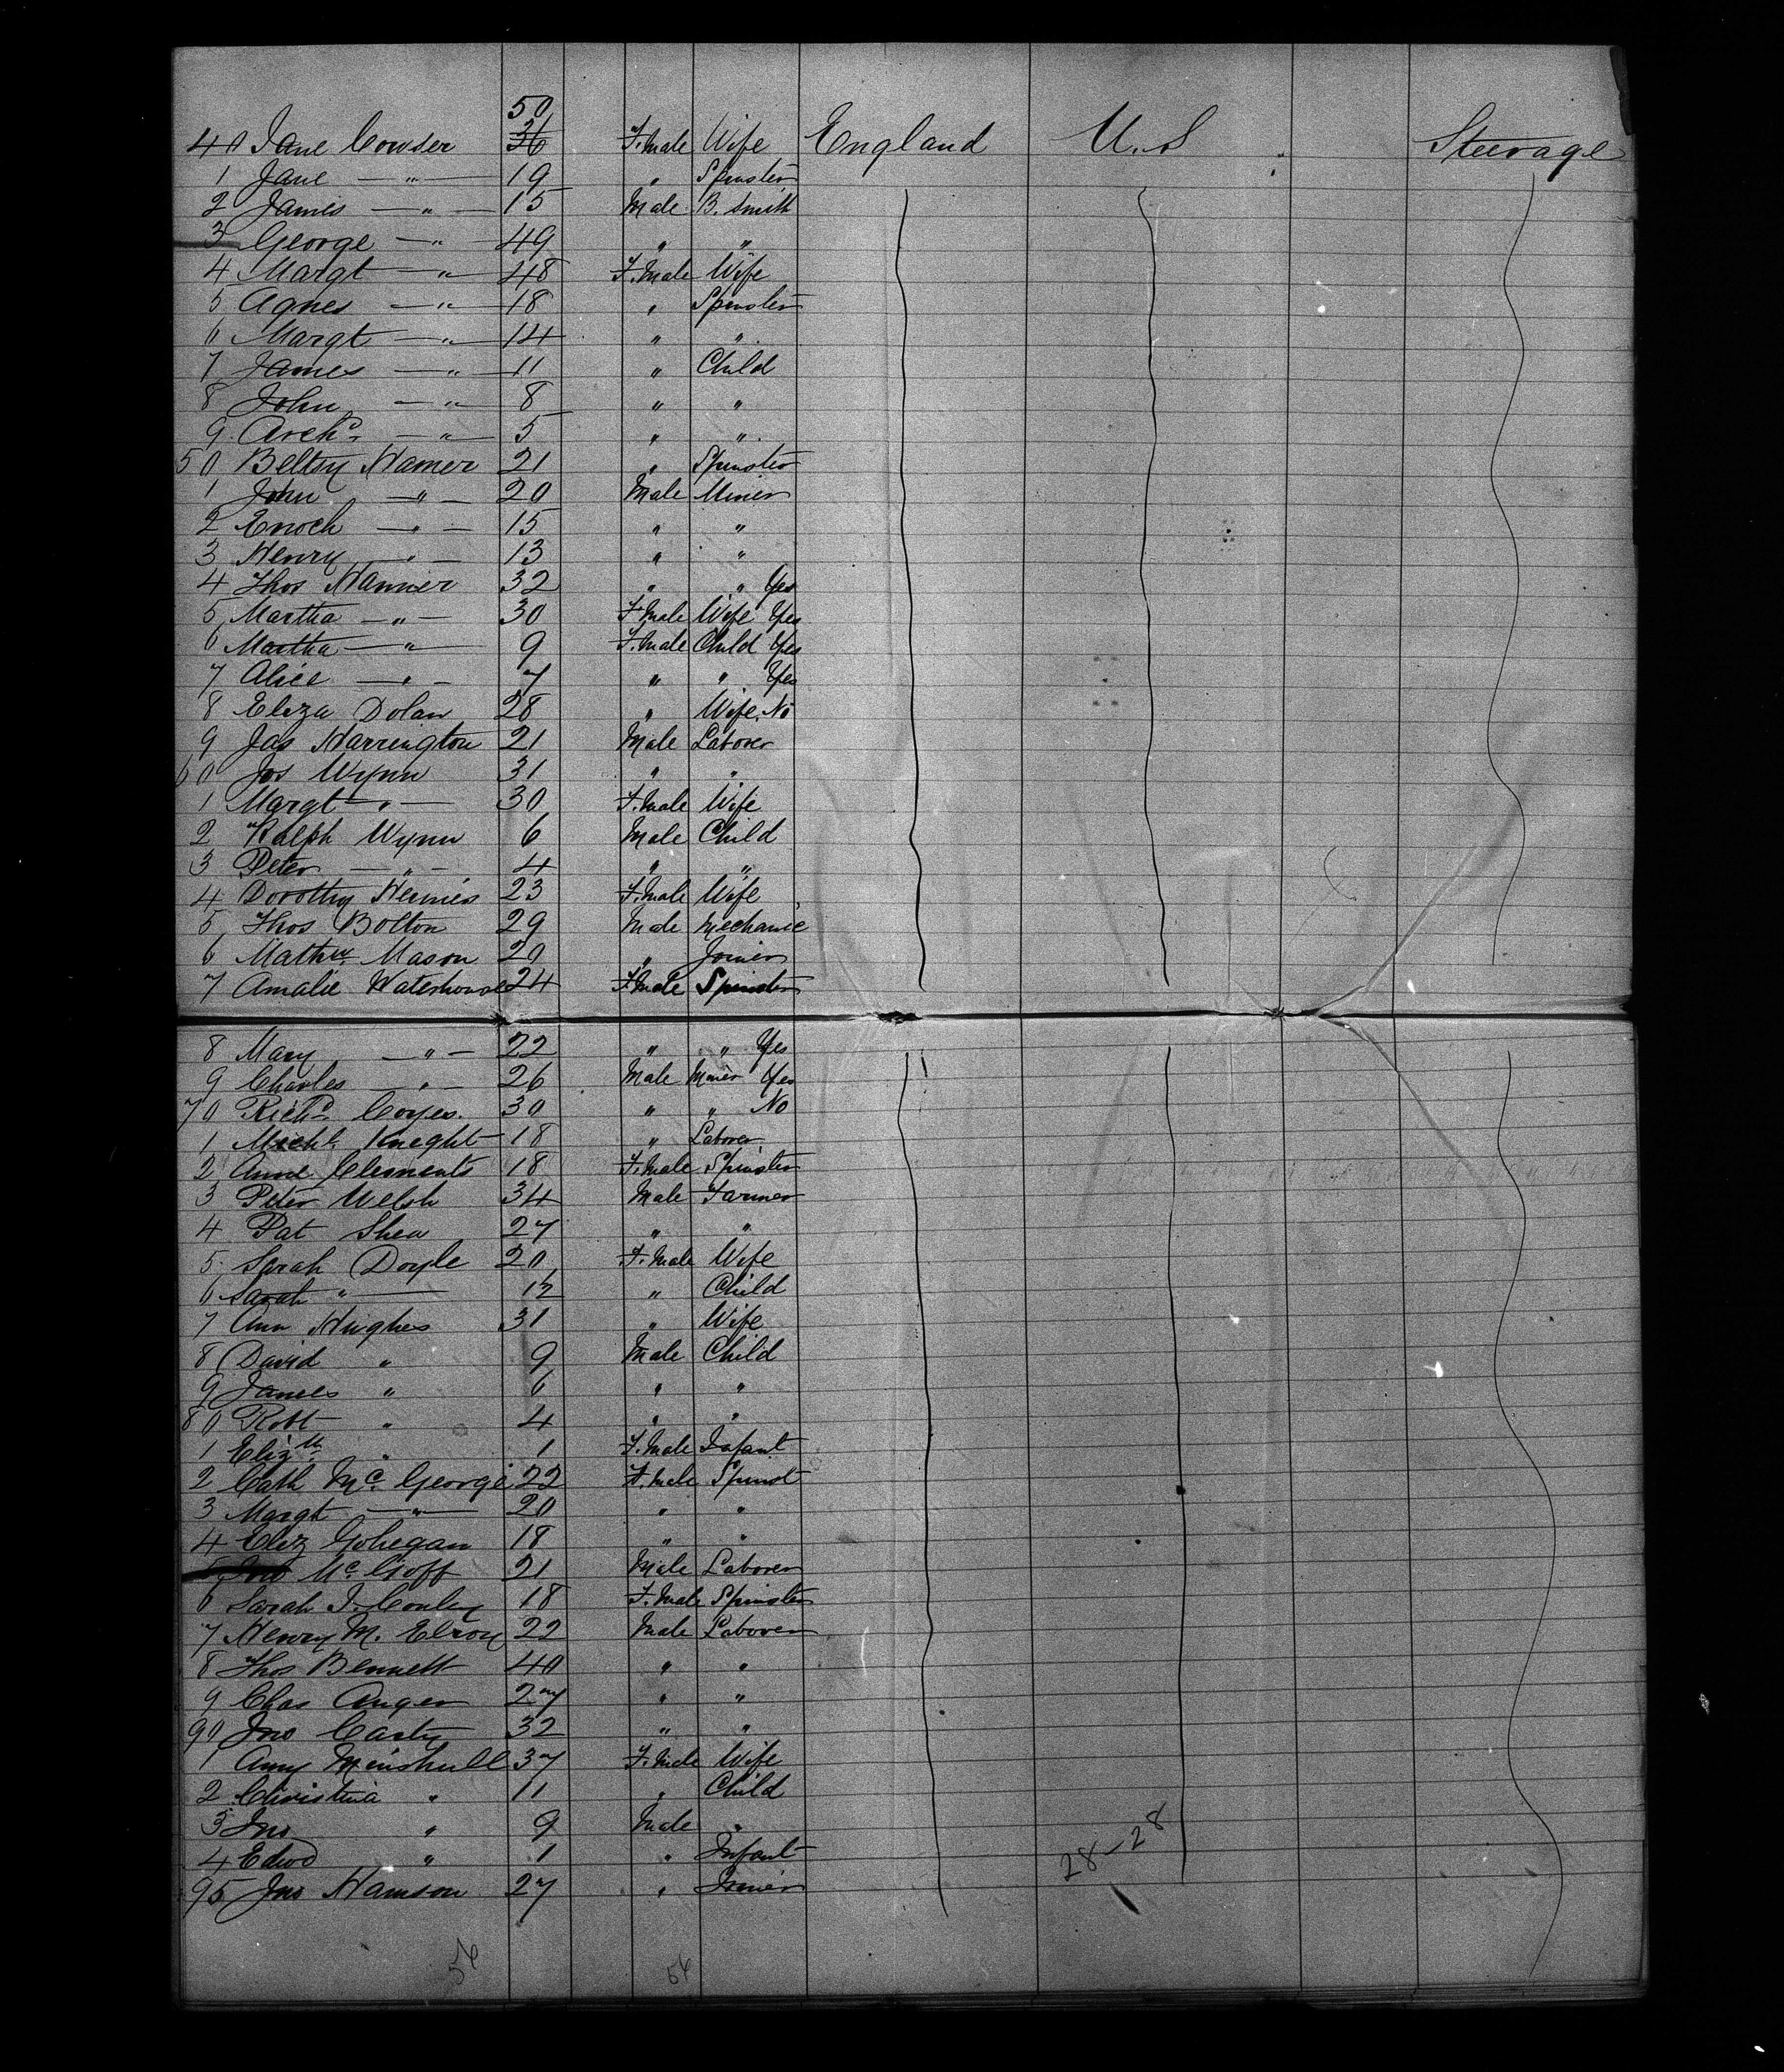 50
40 Jane Cowser 36 F.male Wife England U.S Steerage
1 Jane — " — 19 " Spinster
2 James — " — 15 Male B. Smith
3 George — " — 49 " "
4 Margt — " — 48 F.male Wife
5 Agnes — " — 18 " Spinster
6 Margt — " — 14 " "
7 James — " — 11 " Child
8 John — " — 8 " "
9 Archd — " — 5 " "
50 Beltsy Hamer 21 " Spinster
1 John — " — 20 Male Miner
2 Enoch — " — 15 " "
3 Henry — " — 13 " "
4 Thos Hammer 32 " " Yes
5 Martha — " — 30 F.male Wife Yes
6 Martha — " — 9 F.male Child Yes
7 Alice — " — 7 " " Yes
8 Eliza Dolan 28 " Wife No
9 Jas Harrington 21 Male Laborer
60 Jos Wynn 31 " "
1 Margt — " — 30 F.male Wife
2 Ralph Wynn 6 Male Child
3 Peter — " — 4 " "
4 Dorothy 23 F.male Wife
5 Thos Bolton 29 Male Mechanic
6 Mathw Mason 20 " Joiner
7 Amalie Waterhouse 24 F.male Spinster
8 Mary — " — 22 " " Yes
9 Charles — " — 26 Male Miner Yes
70 Richd Coyes. 30 " " No
1 Michl Kneght 18 " Laborer
2 Anne Clements 18 F.male Spinster
3 Peter Welsh 34 Male Farmer
4 Pat Shea 27 " "
5 Sarah Doyle 20 F.male Wife
6 Sarah " — " Child
7 Ann Hughes 31 " Wife
8 David " 9 Male Child
9 James " 6 " "
80 Robt " 4 " "
1 Elizth " 1 F.male Infant
2 Cath Mc George 22 F.male Spinst
3 Margt — " — 20 " "
4 Eliz Gohegan 18 " "
5 Jno Mc Goff 21 Male Laborer
6 Sarah J. Conley 18 F.male Spinster
7 Henry M. Elroy 22 Male Laborer
8 Thos Bennett 40 " "
9 Chas Anger 27 " "
90 Jno Casty 32 " "
1 Amy Minshull 37 F.male Wife
2 Christina " 11 " Child
3 Jno " 9 Male "
4 Edwd " 1 " Infant
95 Jno Hamson 27 " Joiner
28-28
54 54